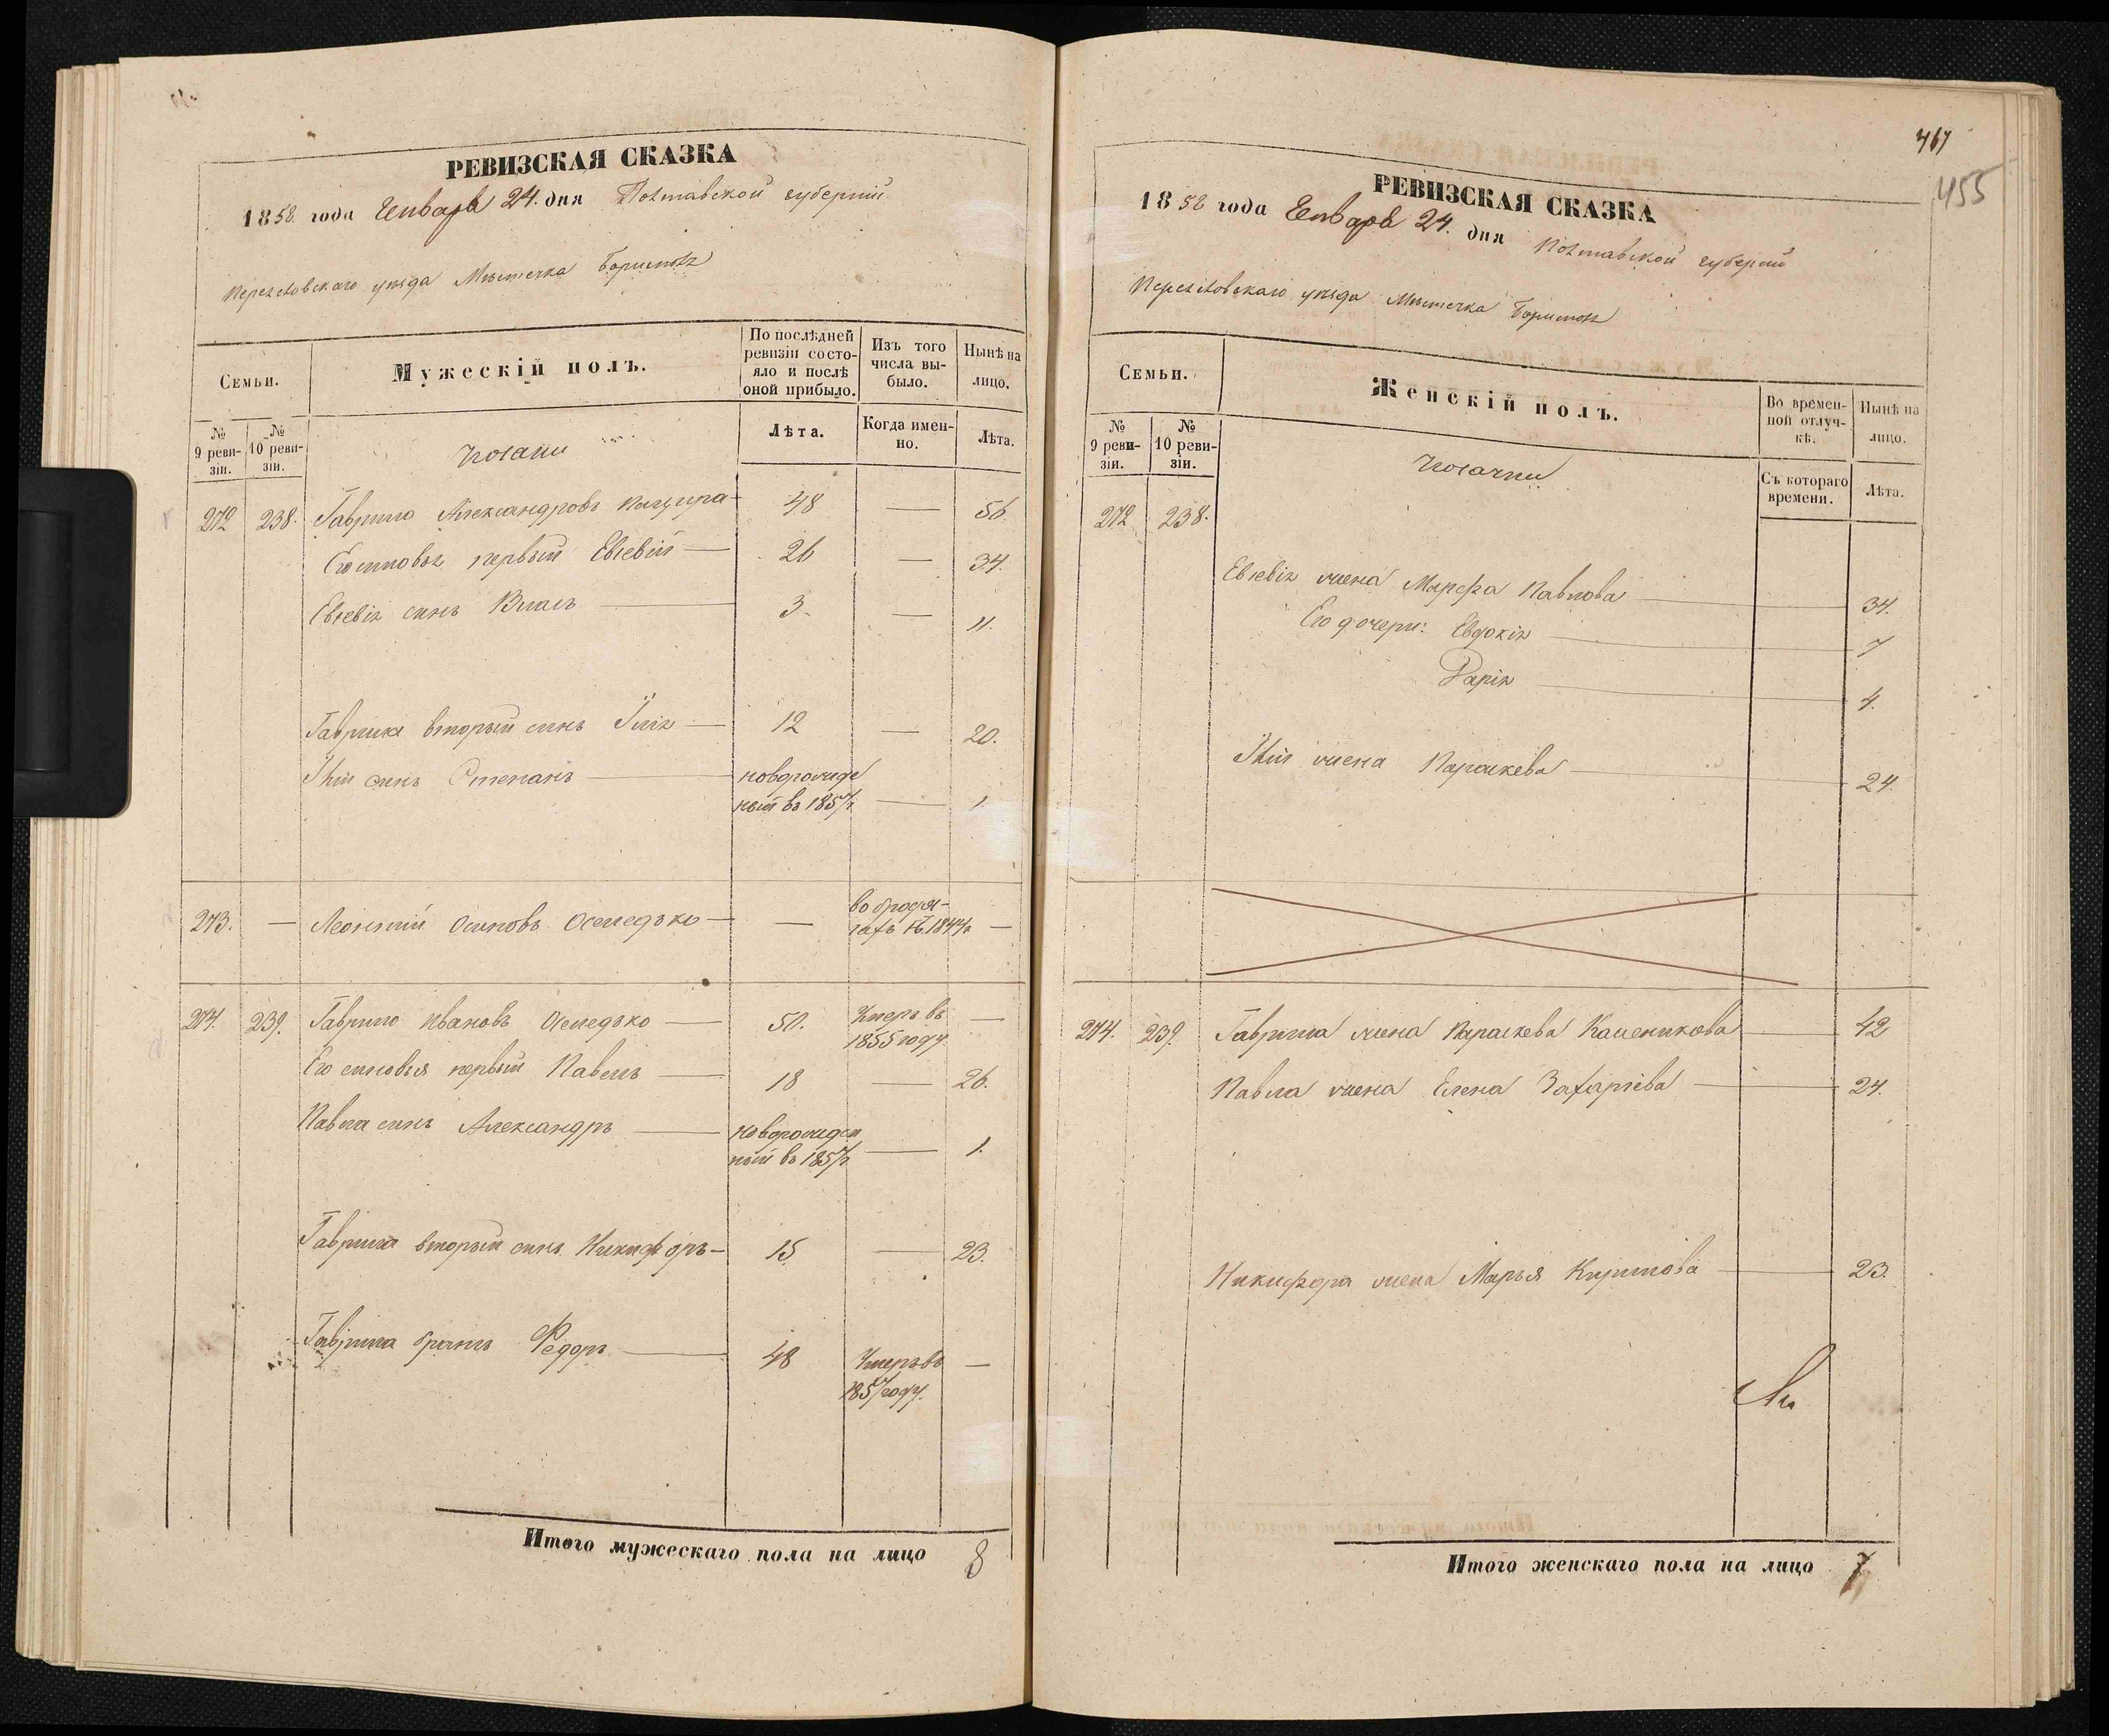 РЕВИЗСКАЯ СКАЗКА
1858. года Генваря 24. дня Полтавской губерніи
Переяславскаго уѣзда Мѣстечка Борисполя
Семьи.
Мужескій полъ.
По послѣдней ревизіи состояло и послѣ оной прибыло.
Изъ того числа выбыло.
Нынѣ на лицо.
№ 9 ревизіи.
№ 10 ревизіи.
Лѣта.
Когда именно.
Лѣта.
Козаки
272 238. Гаврило Александровъ 48 — 56
Его сыновья первый Евсевій — 26 — 34.
Евсевія сынъ Власъ — 3. — 11.
Гаврила вторый сынъ Илія — 12 — 20.
Иліи сынъ Степанъ — новорожде
ный въ 1857г — 1.
273. — Леонтій Осиповъ Оселедько — — во бродя-
гахъ съ 1844г —
274. 239. Гаврило Ивановъ Оселедько — 50. Умеръ въ —
1855 году
Его сыновья первый Павелъ — 18 — 26.
Павла сынъ Александръ — новорожден
ный въ 1857г — 1.
Гаврила вторый сынъ Никифоръ — 15 — 23.
Гаврила братъ Федоръ — 48 Умеръ въ —
1857 году.
Итого мужескаго пола на лицо 8
467
455
РЕВИЗСКАЯ СКАЗКА
1858 года Генваря 24. дня Полтавской губерніи
Переяславскаго уѣзда Мѣстечка Борисполя
Семьи.
Женскій полъ.
Во временной отлучкѣ.
Нынѣ на лицо.
№ 9 ревизіи.
№ 10 ревизіи.
Съ котораго времени.
Лѣта.
Козачки
272 238.
Евсевія жена Марфа Павлова — 34.
Его дочери: Евдокія — 7
Дарія — 4.
Иліи жена Параскева — 24.
274. 239. Гаврила жена Параскева — 42
Павла жена Елена Захаріева — 24.
Никифора жена Марья Кирилова — 23.
Итого женскаго пола на лицо 7